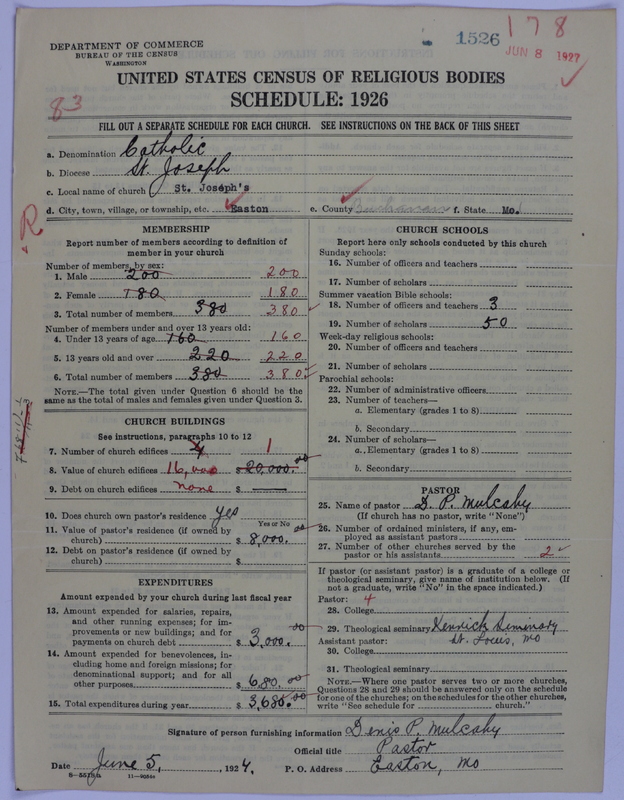 DEPARTMENT OF COMMERCE
BUREAU OF THE CENSUS
WASHINGTON
1526
178
JUN 8 1927
83
UNITED STATES CENSUS OF RELIGIOUS BODIES
SCHEDULE: 1926
FILL OUT A SEPARATE SCHEDULE FOR EACH CHURCH. SEE INSTRUCTIONS ON THE BACK OF THIS SHEET
a. Denomination Catholic
b. Diocese St. Joseph
c. Local name of church St. Joseph's
d. City, town, village, or township, etc. Easton e. County Buchanan f. State Mo.
R
MEMBERSHIP
Report number of members according to definition of
member in your church
Number of members, by sex:
1. Male 200 200
2. Female 180 180
3. Total number of members 380 380
Number of members under and over 13 years old:
4. Under 13 years of age 160 160
5. 13 years old and over 220 220
6. Total number of members 380 380
NOTE.—The total given under Question 6 should be
same as the total of males and females given under Question 3.
CHURCH BUILDINGS
See instructions, paragraphs 10 to 12
7. Number of church edifices 1
8. Value of church edifices 16,000 $ 20,000.00
9. Debt on church edifices none $
10. Does church own pastor's residence yes
Yes or No
11. Value of pastor's residence (if owned by
church) $ 8,000.00
12. Debt on pastor's residence (if owned by
church) $
EXPENDITURES
Amount expended by your church during last fiscal year
13. Amount expended for salaries, repairs,
and other running expenses; for im-
provements or new buildings; and for
payments on church debt $ 3,000.00
14. Amount expended for benevolences, in-
cluding home and foreign missions; for
denominational support; and for all
other purposes $ 680.00
15. Total expenditures during year $ 3,680.00
CHURCH SCHOOLS
Report here only schools conducted by this church
Sunday schools:
16. Number of officers and teachers
17. Number of scholars
Summer vacation Bible schools:
18. Number of officers and teachers 3
19. Number of scholars 50
Week-day religious schools:
20. Number of officers and teachers
21. Number of scholars
Parochial schools:
22. Number of administrative officers
23. Number of teachers—
a. Elementary (grades 1 to 8)
b. Secondary
24. Number of scholars—
a. Elementary (grades 1 to 8)
b. Secondary
PASTOR
25. Name of pastor D. P. Mulcahy
(If church has no pastor, write "None")
26. Number of ordained ministers, if any, em-
ployed as assistant pastors
27. Number of other churches served by the
pastor or his assistants 2
If pastor (or assistant pastor) is a graduate of a college or
theological seminary, give name of institution below. (If
not a graduate, write "No" in the space indicated.)
Pastor: 4
28. College
29. Theological seminary Kenrick Seminary
Assistant pastor: St. Louis, Mo
30. College
31. Theological seminary
NOTE.—Where one pastor serves two or more churches,
Questions 28 and 29 should be answered only on the schedule
for one of the churches; on the schedules for the other churches,
write "See schedule for church."
Signature of person furnishing information Denis P. Mulcahy
Official title Pastor
Date June 5, 1927. P. O. Address Easton, Mo
11—9054